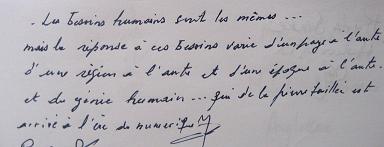 - Les besoins humains sont les mêmes ...
mais la réponse à ces besoins varie d'un pays à l'autre
d'une région à l'autre et d'une époque à l'autre.
et du génie humain ... qui de la pierre taillée est
arrivé à l'ère du numérique